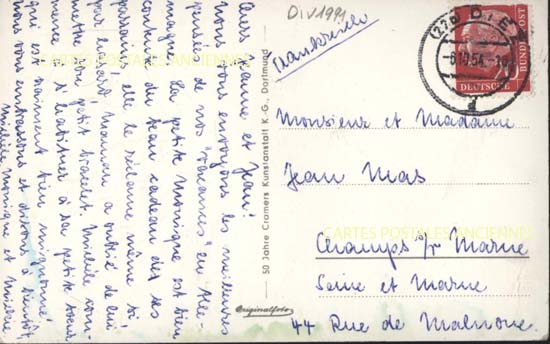 Chers Jeanne et Jean!
Nous vous envoyons les meilleures
pensées de nos "vacances" en Alle-
magne. La petite Monique est bien
contente du beau cadeau de ses
elle le réclame même si
par hasard, Maman a oublié de lui
mettre son petit bracelet. Mireille com-
mence à s'habituer à sa petite sœur
qui est vraiment bien mignonne!
Nous vous embrassons et disons à bientôt,
Mireille Monique et
DIV1991
50 Jahre Cramers Kunstanstalt K.-G., Dortmund
Originalfoto
(22c)
-6.10.54.-10
DEUTSCHE BUNDESPOST
Monsieur et Madame
Jean Mas
CARTES POSTALES ANCIENNES
CARTES POSTALES ANCIENNES
Champs s/r Marne
Seine et Marne
44 Rue de Malnoue.